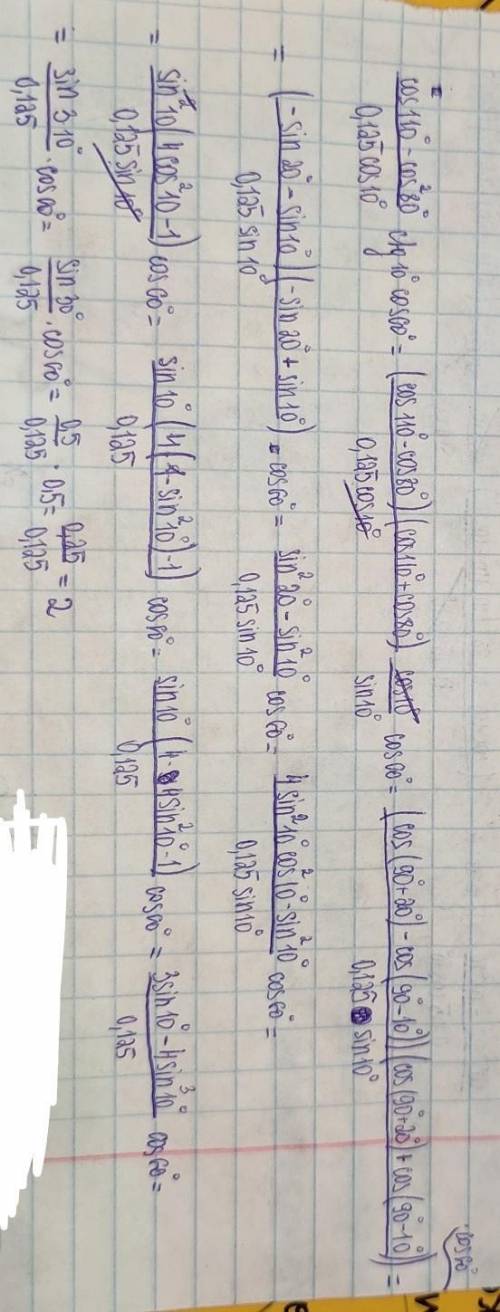 = (cos110° - cos²80°)/(0,125 cos10°) ctg10° cos60° = ((cos110° - cos80°)(cos110° + cos80°))/(0,125 cos10°) · cos10/sin10° cos60° = ((cos(90°+20°) - cos(90°-10°))(cos(90°+20°) + cos(90°-10°)))/(0,125 sin10°) cos60° =
= ((-sin20° - sin10°)(-sin20° + sin10°))/(0,125 sin10°) · cos60° = (sin²20° - sin²10°)/(0,125 sin10°) cos60° = (4sin²10° cos²10° - sin²10°)/(0,125 sin10°) cos60° =
= (sin²10(4cos²10-1))/(0,125 sin10°) cos60° = (sin10°(4(1-sin²10°)-1))/(0,125) cos60° = (sin10°(4-4sin²10°-1))/(0,125) cos60° = (3sin10° - 4sin³10°)/(0,125) cos60° =
= (sin3·10°)/(0,125) · cos60° = (sin30°)/(0,125) · cos60° = 0,5/0,125 · 0,5 = 0,25/0,125 = 2